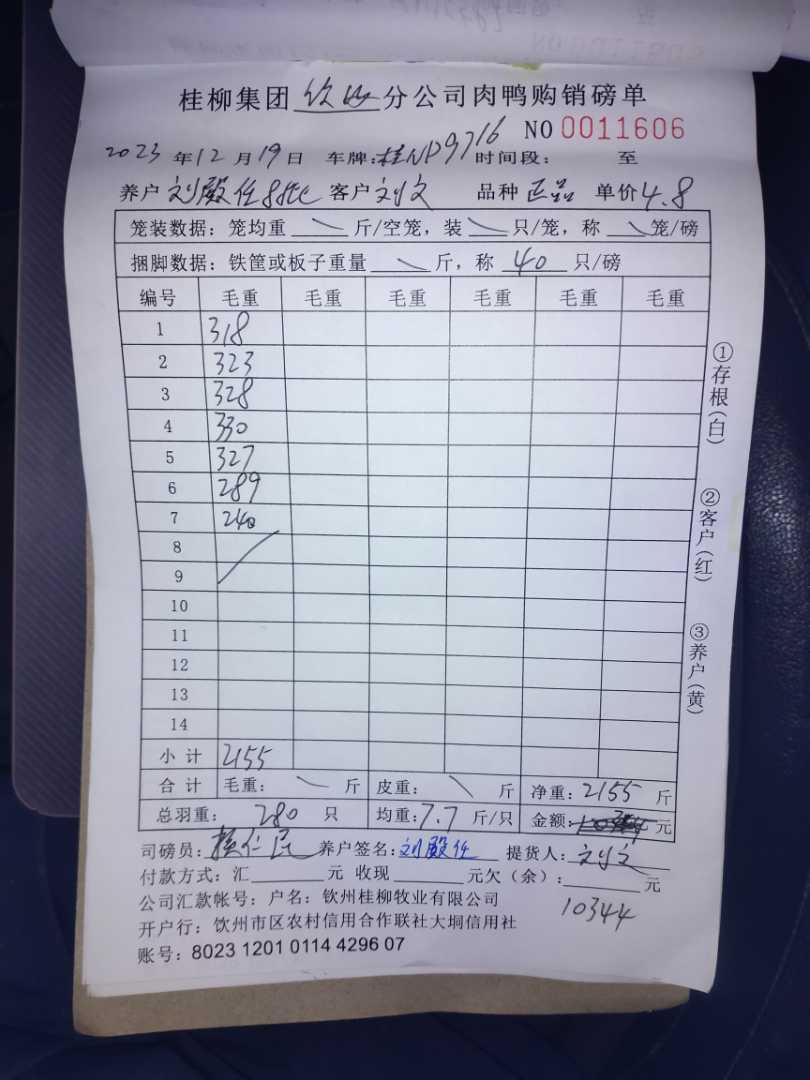 桂柳集团 钦州 分公司肉鸭购销磅单
NO 0011606
2023 年 12 月 19 日 车牌:桂NP9716 时间段: 至
养户 刘殿任 客户 刘文 品种 正品 单价 4.8
笼装数据: 笼均重 斤/空笼, 装 只/笼, 称 笼/磅
捆脚数据: 铁筐或板子重量 斤, 称 40 只/磅
编号 毛重 毛重 毛重 毛重 毛重 毛重
1 318
2 323
3 328
4 330
5 327
6 289
7 240
8
9
10
11
12
13
14
小 计 2155
合 计 毛重: 斤 皮重: 斤 净重: 2155 斤
总羽重: 280 只 均重: 7.7 斤/只 金额: 元
司磅员: 仁民 养户签名: 刘殿任 提货人: 刘文
付款方式: 汇 元 收现 元欠(余): 元
公司汇款帐号: 户名: 钦州桂柳牧业有限公司
10344
开户行: 饮州市区农村信用合作联社大垌信用社
账号: 8023 1201 0114 4296 07
①存根(白)
②客户(红)
③养户(黄)